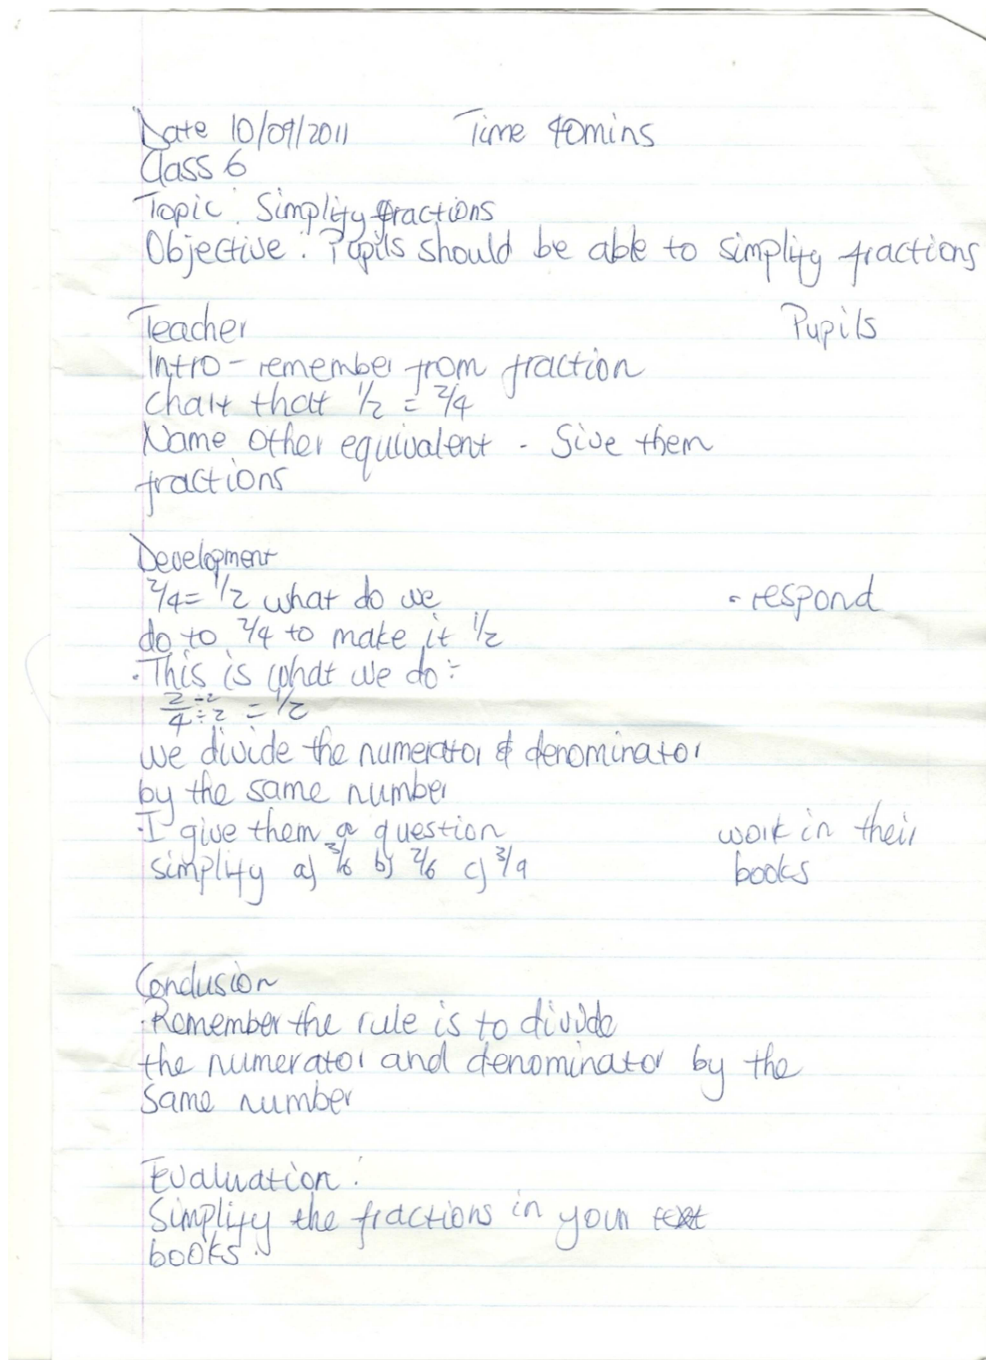 Date 10/09/2011 Time 40mins
Class 6
Topic: Simplify fractions
Objective: Pupils should be able to simplify fractions
Teacher Pupils
Intro - remember from fraction
chart that 1/2 = 2/4
Name other equivalent - Give them
fractions
Development
2/4 = 1/2 what do we - respond
do to 2/4 to make it 1/2
. This is what we do:
2/4 ÷2/÷2 = 1/2
we divide the numerator & denominator
by the same number
. I give them a question work in their
simplify a) 3/6 b) 2/6 c) 3/9 books
Conclusion
. Remember the rule is to divide
the numerator and denominator by the
same number
Evaluation:
Simplify the fractions in your
books.